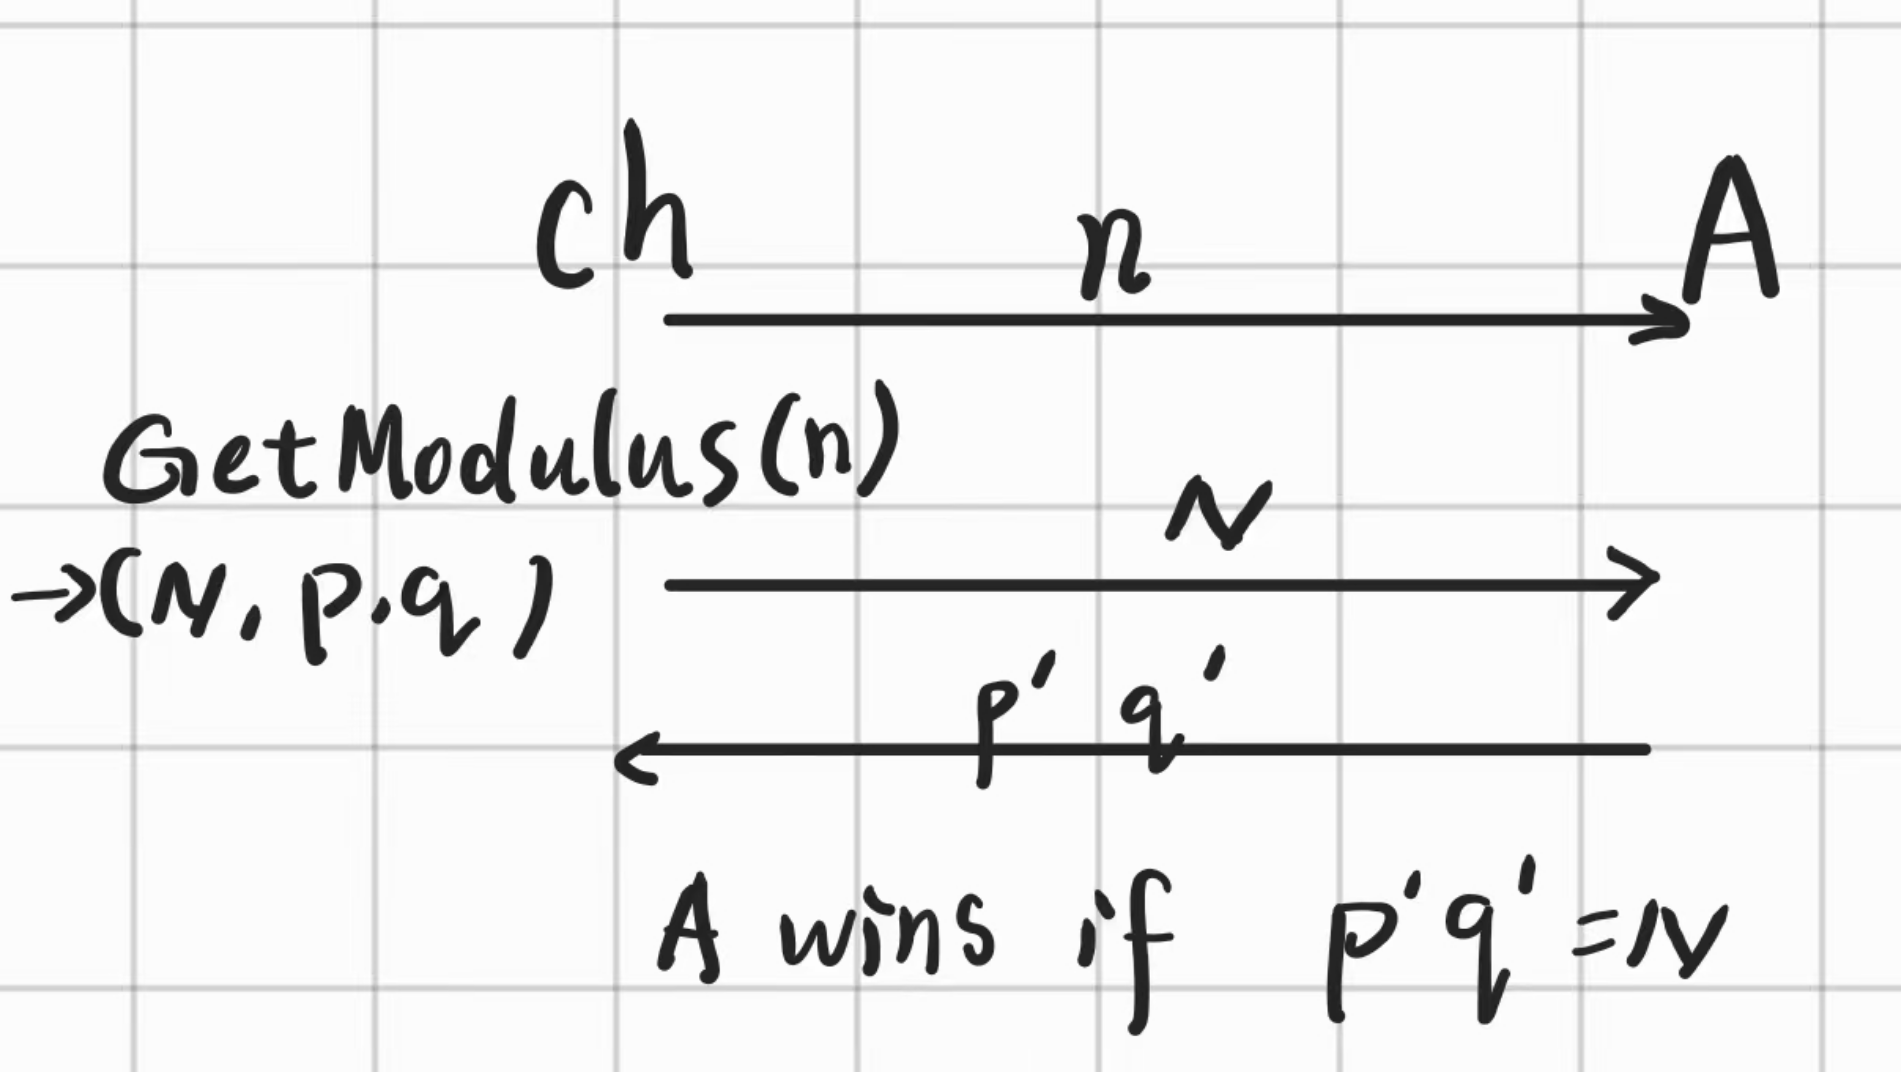 ch n A
GetModulus(n)
N
→(N, p.q)
p' q'
A wins if p'q'=N